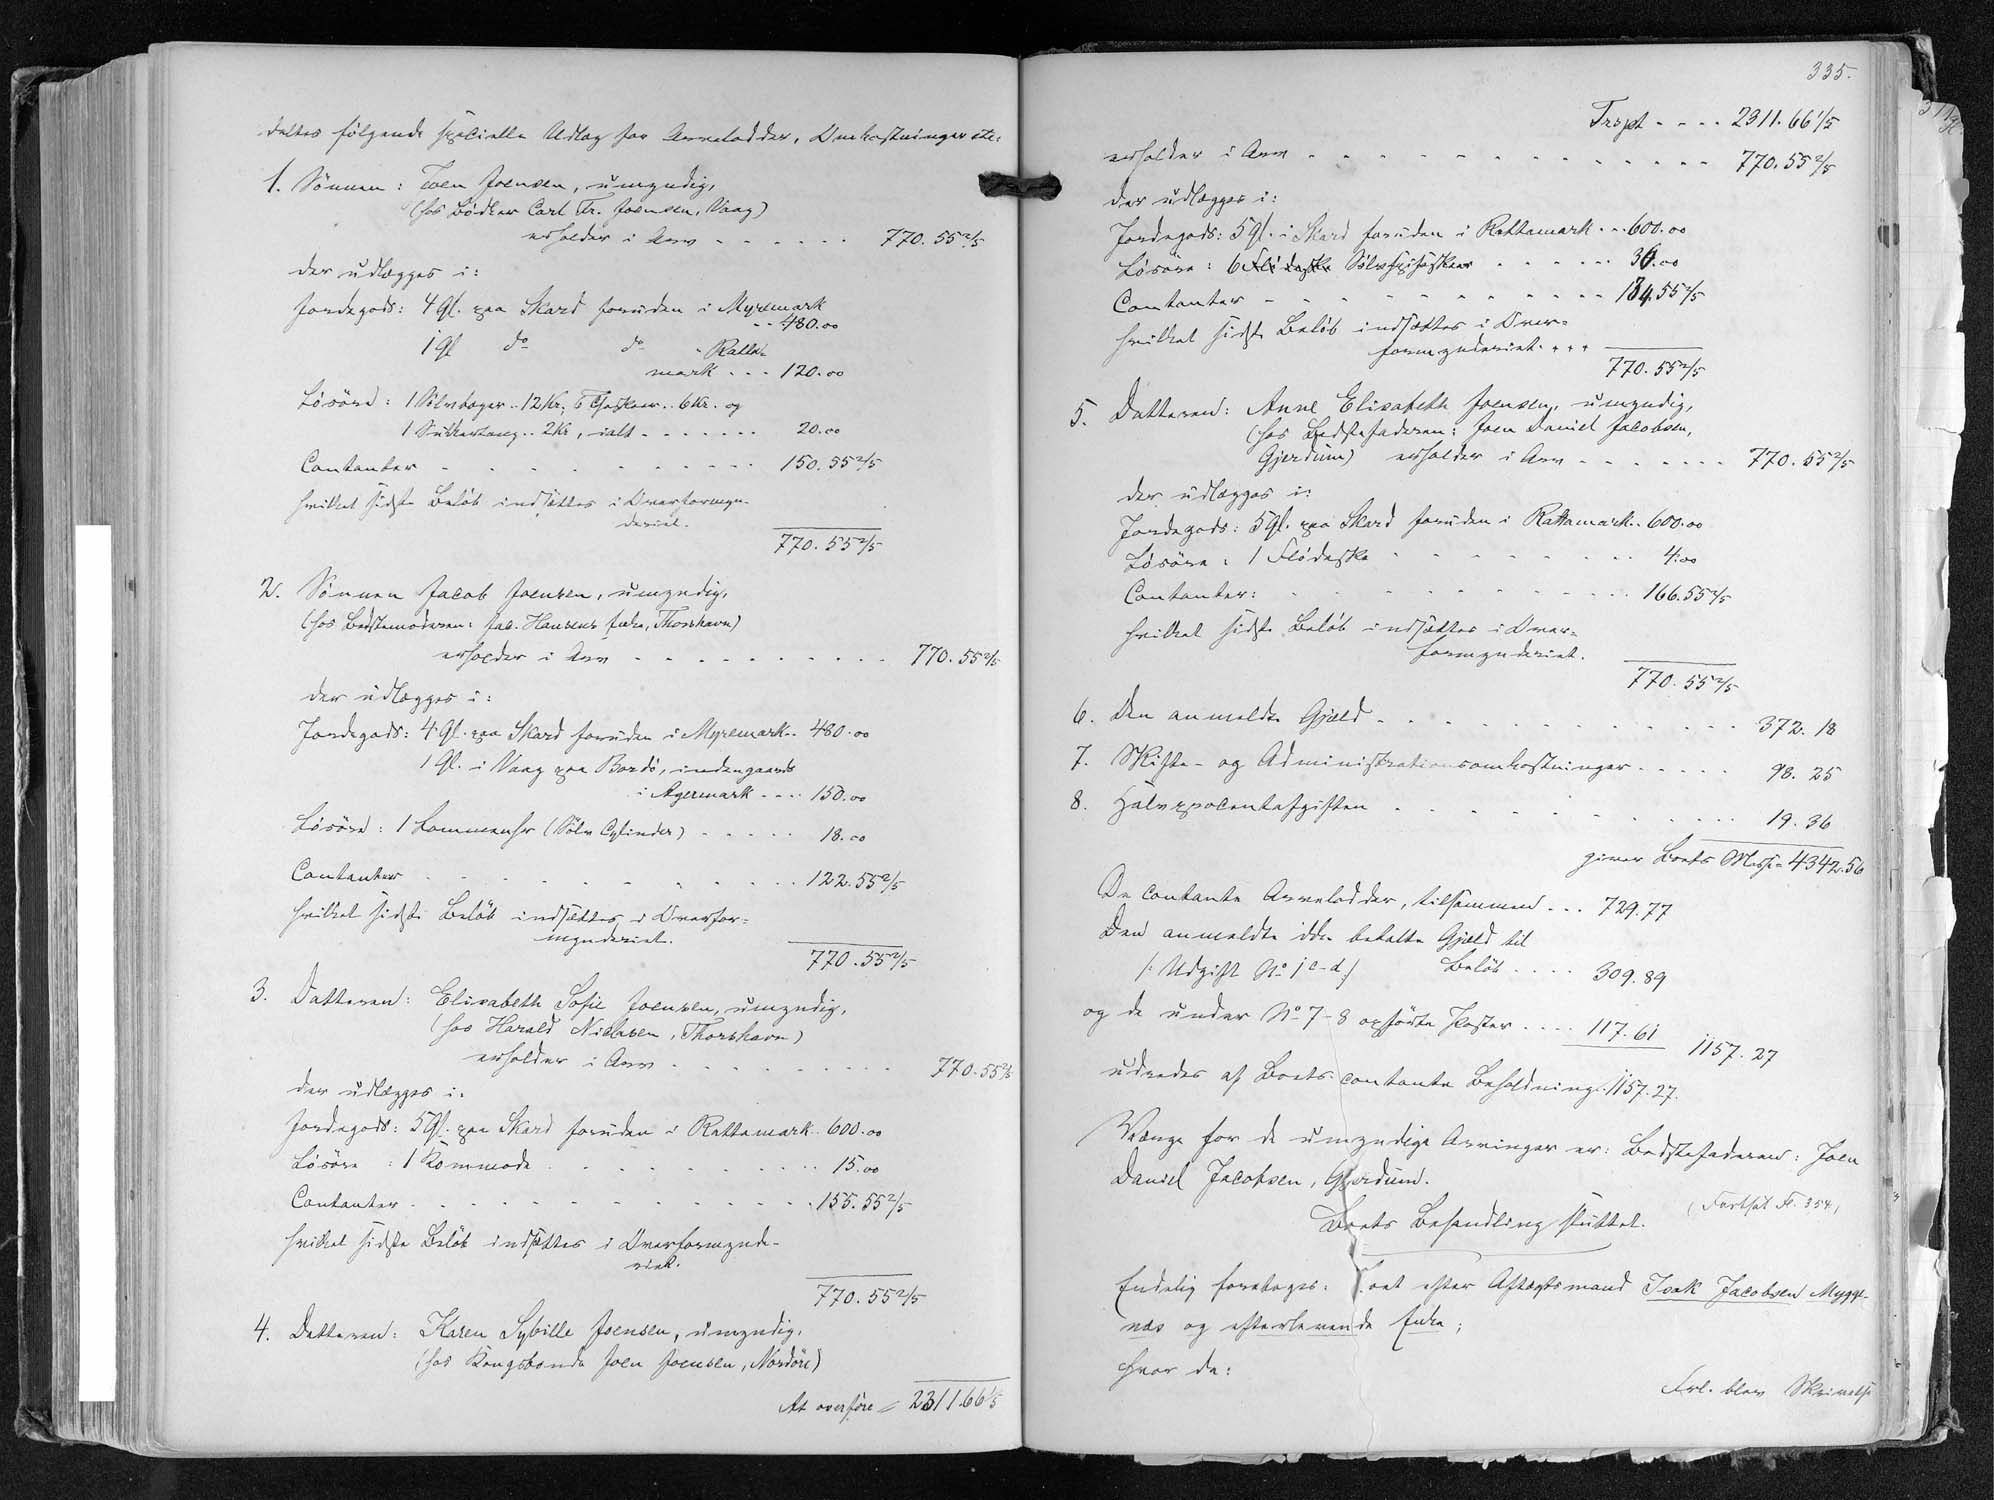 deltes følgende specielle Udlæg for Arvelodder, Omkostninger etc.
1. Sönnen: Joen Joensen, umyndig,
(hos Bödker Carl Fr. Joensen, Vaag)
erholder i Arv - - - - - - 770. 55 2/5
der udlægges i:
Jordegods: 4 Gl. paa Skard foruden i Myremark
- - 480.00
1 Gl do do - Ratta-
mark - - - 120.00
Lösöre: 1 Sölvbæger .. 12 Kr., 6 Theskeer .. 6 Kr. og
1 Sukkertang .. 2 Kr, ialt - - - - - - 20.00
Contanter - - - - - - - - 150. 55 2/5
hvilket sidste Belöb indsættes i Overformyn-
deriet.
770. 55 2/5
2. Sönnen Jacob Joensen, umyndig,
(hos Bedstemoderen: Jac. Hansens Enke, Thorshavn)
erholder i Arv - - - - - - - - - 770. 55 2/5
der udlægges i:
Jordegods: 4 Gl. paa Skard foruden i Myremark .. 480.00
1 Gl. i Vaag paa Bordö, indengaards
i Agermark - - - 150.00
Lösöre: 1 Lommeuhr (Sölv Cylinder) - - - - - 18.00
Contanter - - - - - - - - - 122. 55 2/5
hvilket sidste Belöb indsættes i Overfor-
mynderiet.
770. 55 2/5
3. Datteren: Elisabeth Sofie Joensen, umyndig,
(hos Harald Niclasen, Thorshavn)
erholder i Arv - - - - - - - - - 770. 55 2/5
der udlægges i:
Jordegods: 5 Gl. paa Skard foruden i Rattamark .. 600.00
Lösöre: 1 Kommode - - - - - - - - 15.00
Contanter - - - - - - - - - - 155. 55 2/5
hvilket sidste Belöb indsættes i Overformynde-
riet.
770. 55 2/5
4. Datteren: Karen Sybille Joensen, umyndig,
(hos Kongsbonde Joen Joensen, Nordöre)
At overføre 2311. 66 1/5
335.
Trspt - - - - 2311. 66 1/5
erholder i Arv - - - - - - - - - - - - 770. 55 2/5
der udlægges i:
Jordegods: 5 Gl. i Skard foruden i Rattamark - - 600.00
Lösöre: 6 Flödeske Sölvspiseskeer - - - - - 36.00
Contanter - - - - - - - - - - - 134. 55 2/5
hvilket sidste Belöb indsættes i Over-
formynderiet - - -
770. 55 2/5
5. Datteren: Anne Elisabeth Joensen, umyndig,
(hos Bedstefaderen: Joen Daniel Jacobsen,
Gjerdum) erholder i Arv - - - - - - 770. 55 2/5
der udlægges i:
Jordegods: 5 Gl. paa Skard foruden i Rattamark .. 600.00
Lösöre: 1 Flödeske - - - - - - - - 4.00
Contanter: - - - - - - - - - - - 166. 55 2/5
hvilket sidste Belöb indsættes i Over-
formynderiet.
770. 55 2/5
6. Den anmeldte Gjæld - - - - - - - - - - - 372. 18
7. Skifte- og Administrationsomkostninger - - - - 98. 25
8. Halvprocentafgiften - - - - - - - - - - 19. 36
giver Boets Masse = 4342. 56
De contante Arvelodder, tilsammen - - - 729. 77
Den anmeldte ikke betalte Gjæld til
/: Udgift No 1 c-d :/ Beløb - - - - 309. 89
og de under No 7-8 opførte Poster - - - - 117. 61 1157. 27
udredes af Boets contante Beholdning: 1157. 27.
Værge for de umyndige Arvinger er: Bedstefaderen: Joen
Daniel Jacobsen, Gjerdum.
(Fortsat Fl. 354.)
Boets Behandling sluttet.
Endelig foretoges: Boet efter Aftægtsmand Isak Jacobsen Mygge-
næs og efterlevende Enke;
hvor da:
Frl. blev Skrivelse